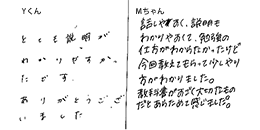 Yくん
とても説明が
わかりやすかっ
たです。
ありがとうござ
いました
Mちゃん
話しやすく、説明も
わかりやすくて、勉強の
仕方がわからなかったけど
今回教えてもらって少しやり
方がわかりました。
教科書がすごく大切なもの
だとあらためて感じました。